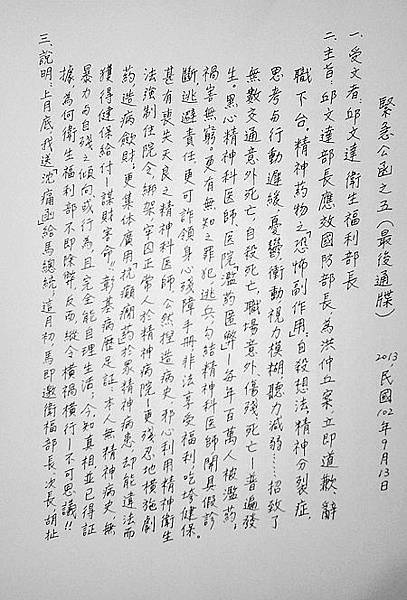 緊急公函之五(最後通牒)
2013,民國102年9月13日
一、受文者:邱文達衛生福利部長
二、主旨:邱文達部長應效國防部長,為洪仲丘案立即道歉辭
職下台,精神药物之「恐怖副作用」:自殺想法,精神分裂症,
思考与行動遲緩,憂鬱,衝動視力模糊聽力減弱……招致了
無數交通意外死亡,自殺死亡,職場意外傷殘,死亡—普遍發
生。黑心精神科医師医院「濫药匿弊」每年百萬人被濫药,
禍害無窮。更有無知之罪犯逃兵勾結精神科医師開具假診
斷逃避責任,更可詐領身心殘障手冊非法享受福利,吃垮健保。
甚有喪失天良之精神科医師公然捏造病史,邪心利用精神衛生
法強制住院令,綁架,牢囚正常人於精神病院,更殘忍地橫施劇
药造病斂財,更集体廣用抗「癲癇药」於眾精神病患,却能違法而
獲得健保給付—謀財害命!!彰基病歷足証本人無精神病史,無
暴力与自殘之傾向或行為且完全能自理生活;今知真相並已得証
據,為何衛生福利部不即除弊,反而縱令橫禍橫行—不可思議!!
三、說明:上月底,我送「沈痛函」給馬總統,這月初,馬即邀衛福部長,次長胡扯